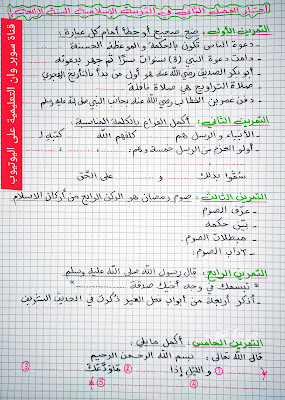 اختبار الفصل الثاني في التربية الإسلامية السنة الرابعة
التمرين الأول: ضع صحيح أو خطأ أمام كل عبارة:
ـ دعوة الناس تكون بالحكمة والموعظة الحسنة
ـ دامت دعوة النبي (3) سنوات سرًّا ثم جهر بدعوته
ـ أبو بكر الصديق رضي الله عنه هو أول من بدأ بالتأريخ الهجري
ـ صلاة التراويح هي صلاة نافلة
ـ دفن عمر بن الخطاب رضي الله عنه بجانب النبي صلى الله عليه وسلم
التمرين الثاني: أكمل الفراغ بالكلمة المناسبة:
ـ الأنبياء و الرسل هم ........ كلفهم الله ........ كتبه لـ ........
ـ أولو العزم من الرسل خمسة وهم: ........ ، ........ ،
سُمّوا بذلك ........ و ........ على الحق
التمرين الثالث: صوم رمضان هو الركن الرابع من أركان الإسلام
ـ عرف الصوم
ـ بيّن حكمه
ـ مبطلات الصوم
ـ آداب الصوم
التمرين الرابع: قال رسول الله صلى الله عليه وسلم
" تبسمك في وجه أخيك صدقة ........"
ـ أذكر أربعة من أبواب فعل الخير ذكرت في الحديث الشريف
التمرين الخامس: أكمل مايلي:
قال الله تعالى: بسم الله الرحمن الرحيم
........ ① و الليل إذا ........ ② ماودّعك ........ ③
........ ④ ........ ⑤
قناة سوبر وان التعليمية على اليوتيوب